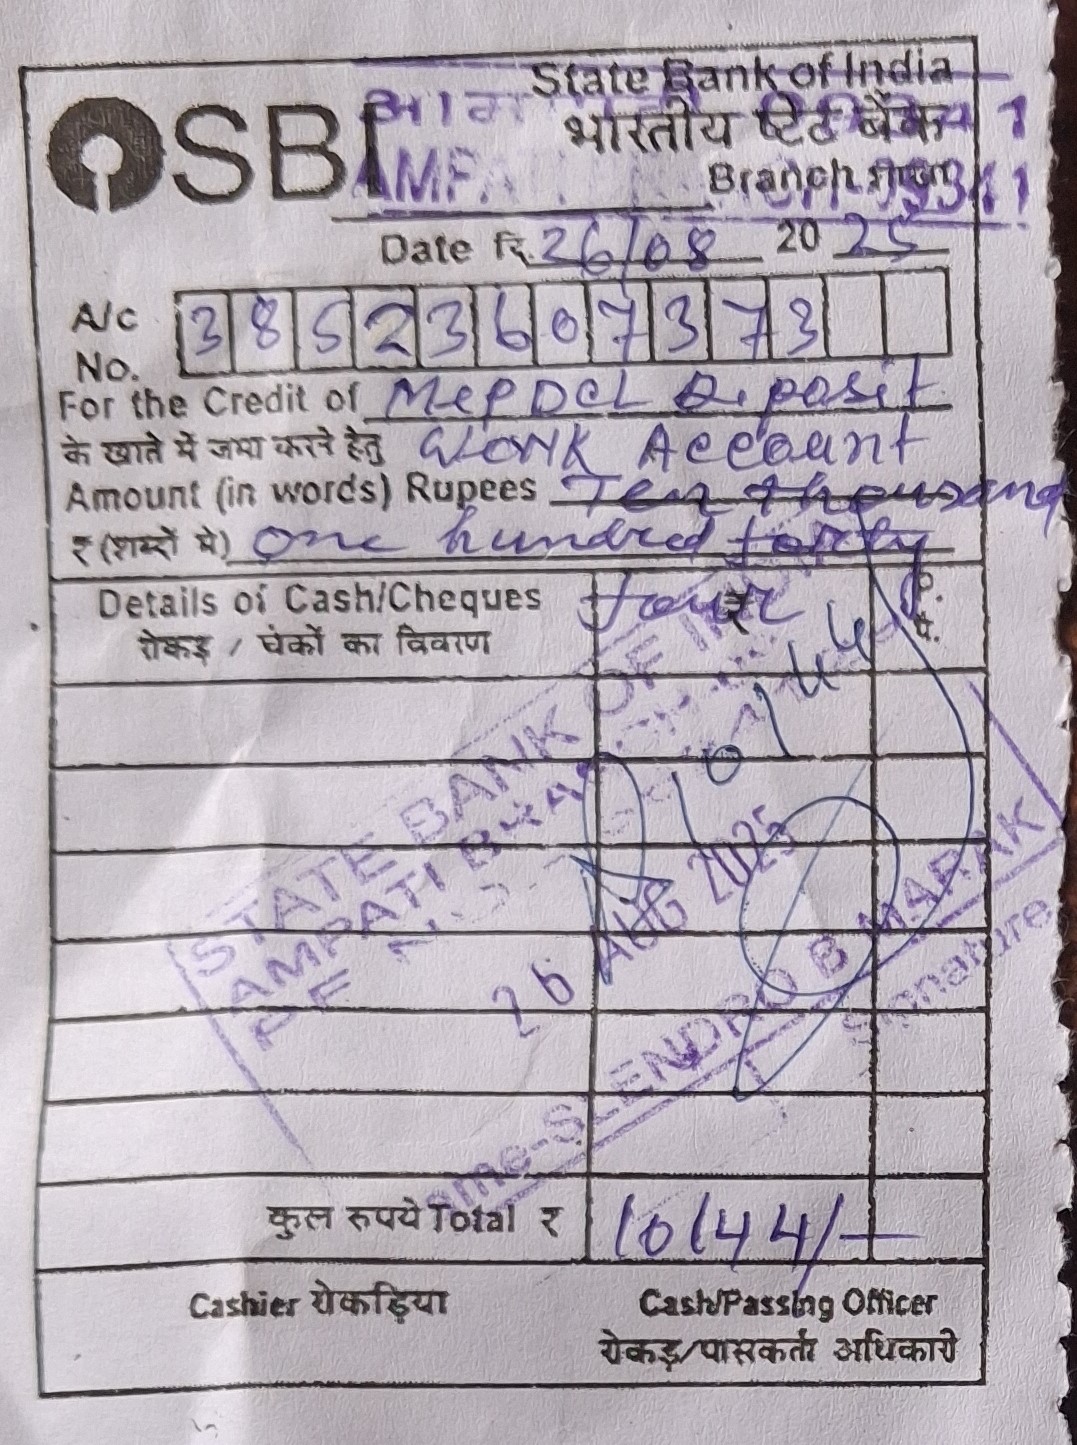 State Bank of India
SBI भारतीय स्टेट बैंक
Branch शाखा
Date दि. 26/08 20 25
A/c No. 3 8 5 2 3 6 0 7 3 7 3
For the Credit of MePDCL Deposit
के खाते में जमा करने हेतु Work Account
Amount (in words) Rupees Ten thousand
₹ (शब्दों में) one hundred forty
Details of Cash/Cheques four ₹ P.
रोकड़ / चेकों का विवरण पै.
10144
STATE BANK OF
AMPATI BRANCH
26 AUG 2025
SLENDRO B MARAK
Signature
कुल रुपये Total ₹ 10144/-
Cashier रोकड़िया Cash/Passing Officer
रोकड़/पासकर्ता अधिकारी